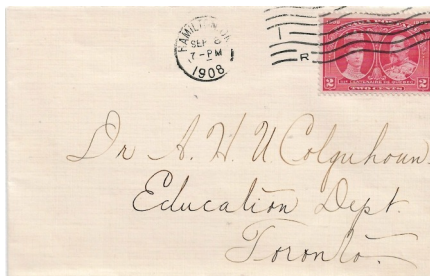 HAMILTON
SEP 8
7-PM
1908
I
R
2
2
TWO CENTS
Dr A. H. U Colquhoun
Education Dept.
Toronto.